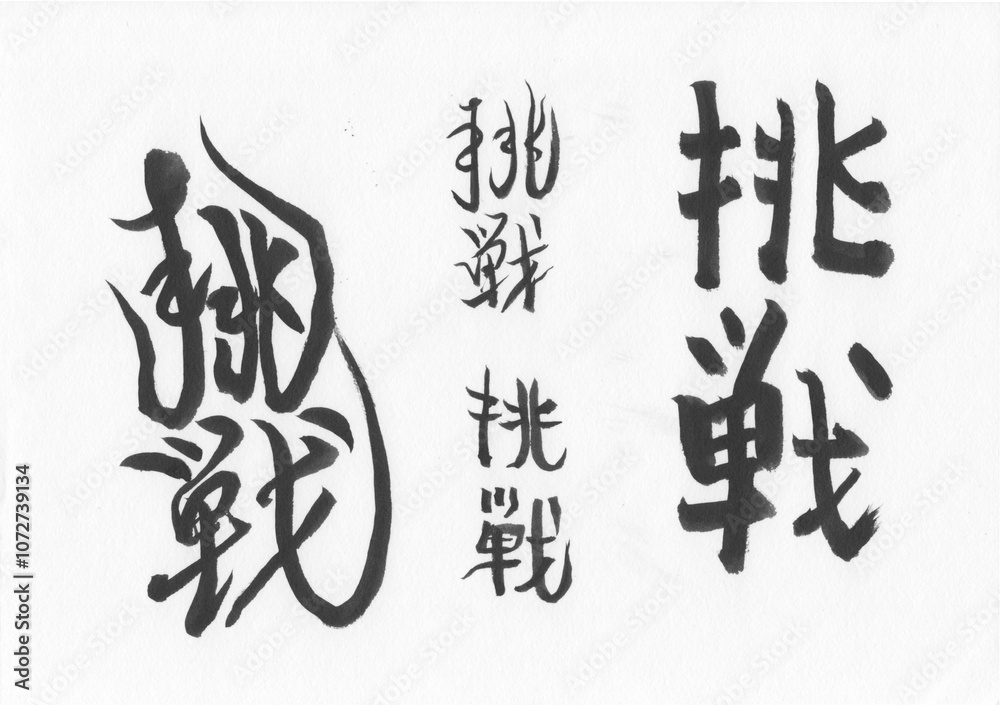 挑戦
挑戦
挑戦
挑戦
Adobe Stock | #1072739134